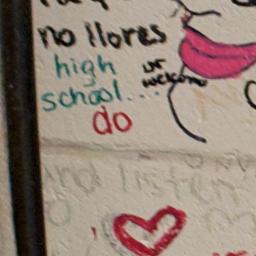 no llores
high
school....
ur
welcome
do
and listen